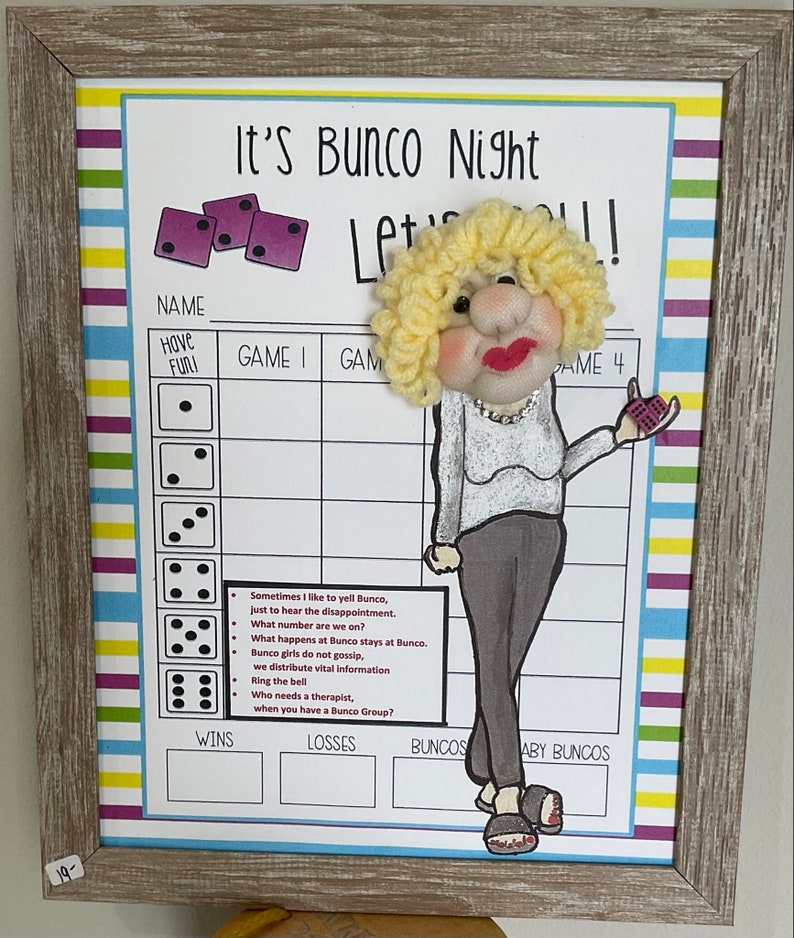 It's Bunco Night
Let's !
NAME
Have Fun!
GAME 1
GAM
AME 4
• Sometimes I like to yell Bunco,
just to hear the disappointment.
• What number are we on?
• What happens at Bunco stays at Bunco.
• Bunco girls do not gossip,
we distribute vital information
• Ring the bell
• Who needs a therapist,
when you have a Bunco Group?
WINS
LOSSES
BUNCOS
ABY BUNCOS
19-